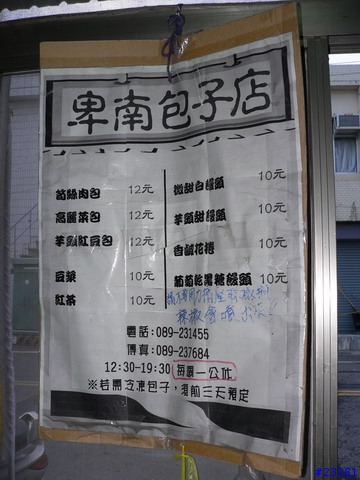 卑南包子店
筍絲肉包 12元
高麗菜包 12元
芋頭紅豆包 12元
豆漿 10元
紅茶 10元
微甜白饅頭 10元
芋頭甜饅頭 10元
香鹹花捲 10元
葡萄乾黑糖饅頭 10元
電話:089-231455
傳真:089-237684
12:30-19:30 每週一公休
※若需冷凍包子,須前三天預定
#23181